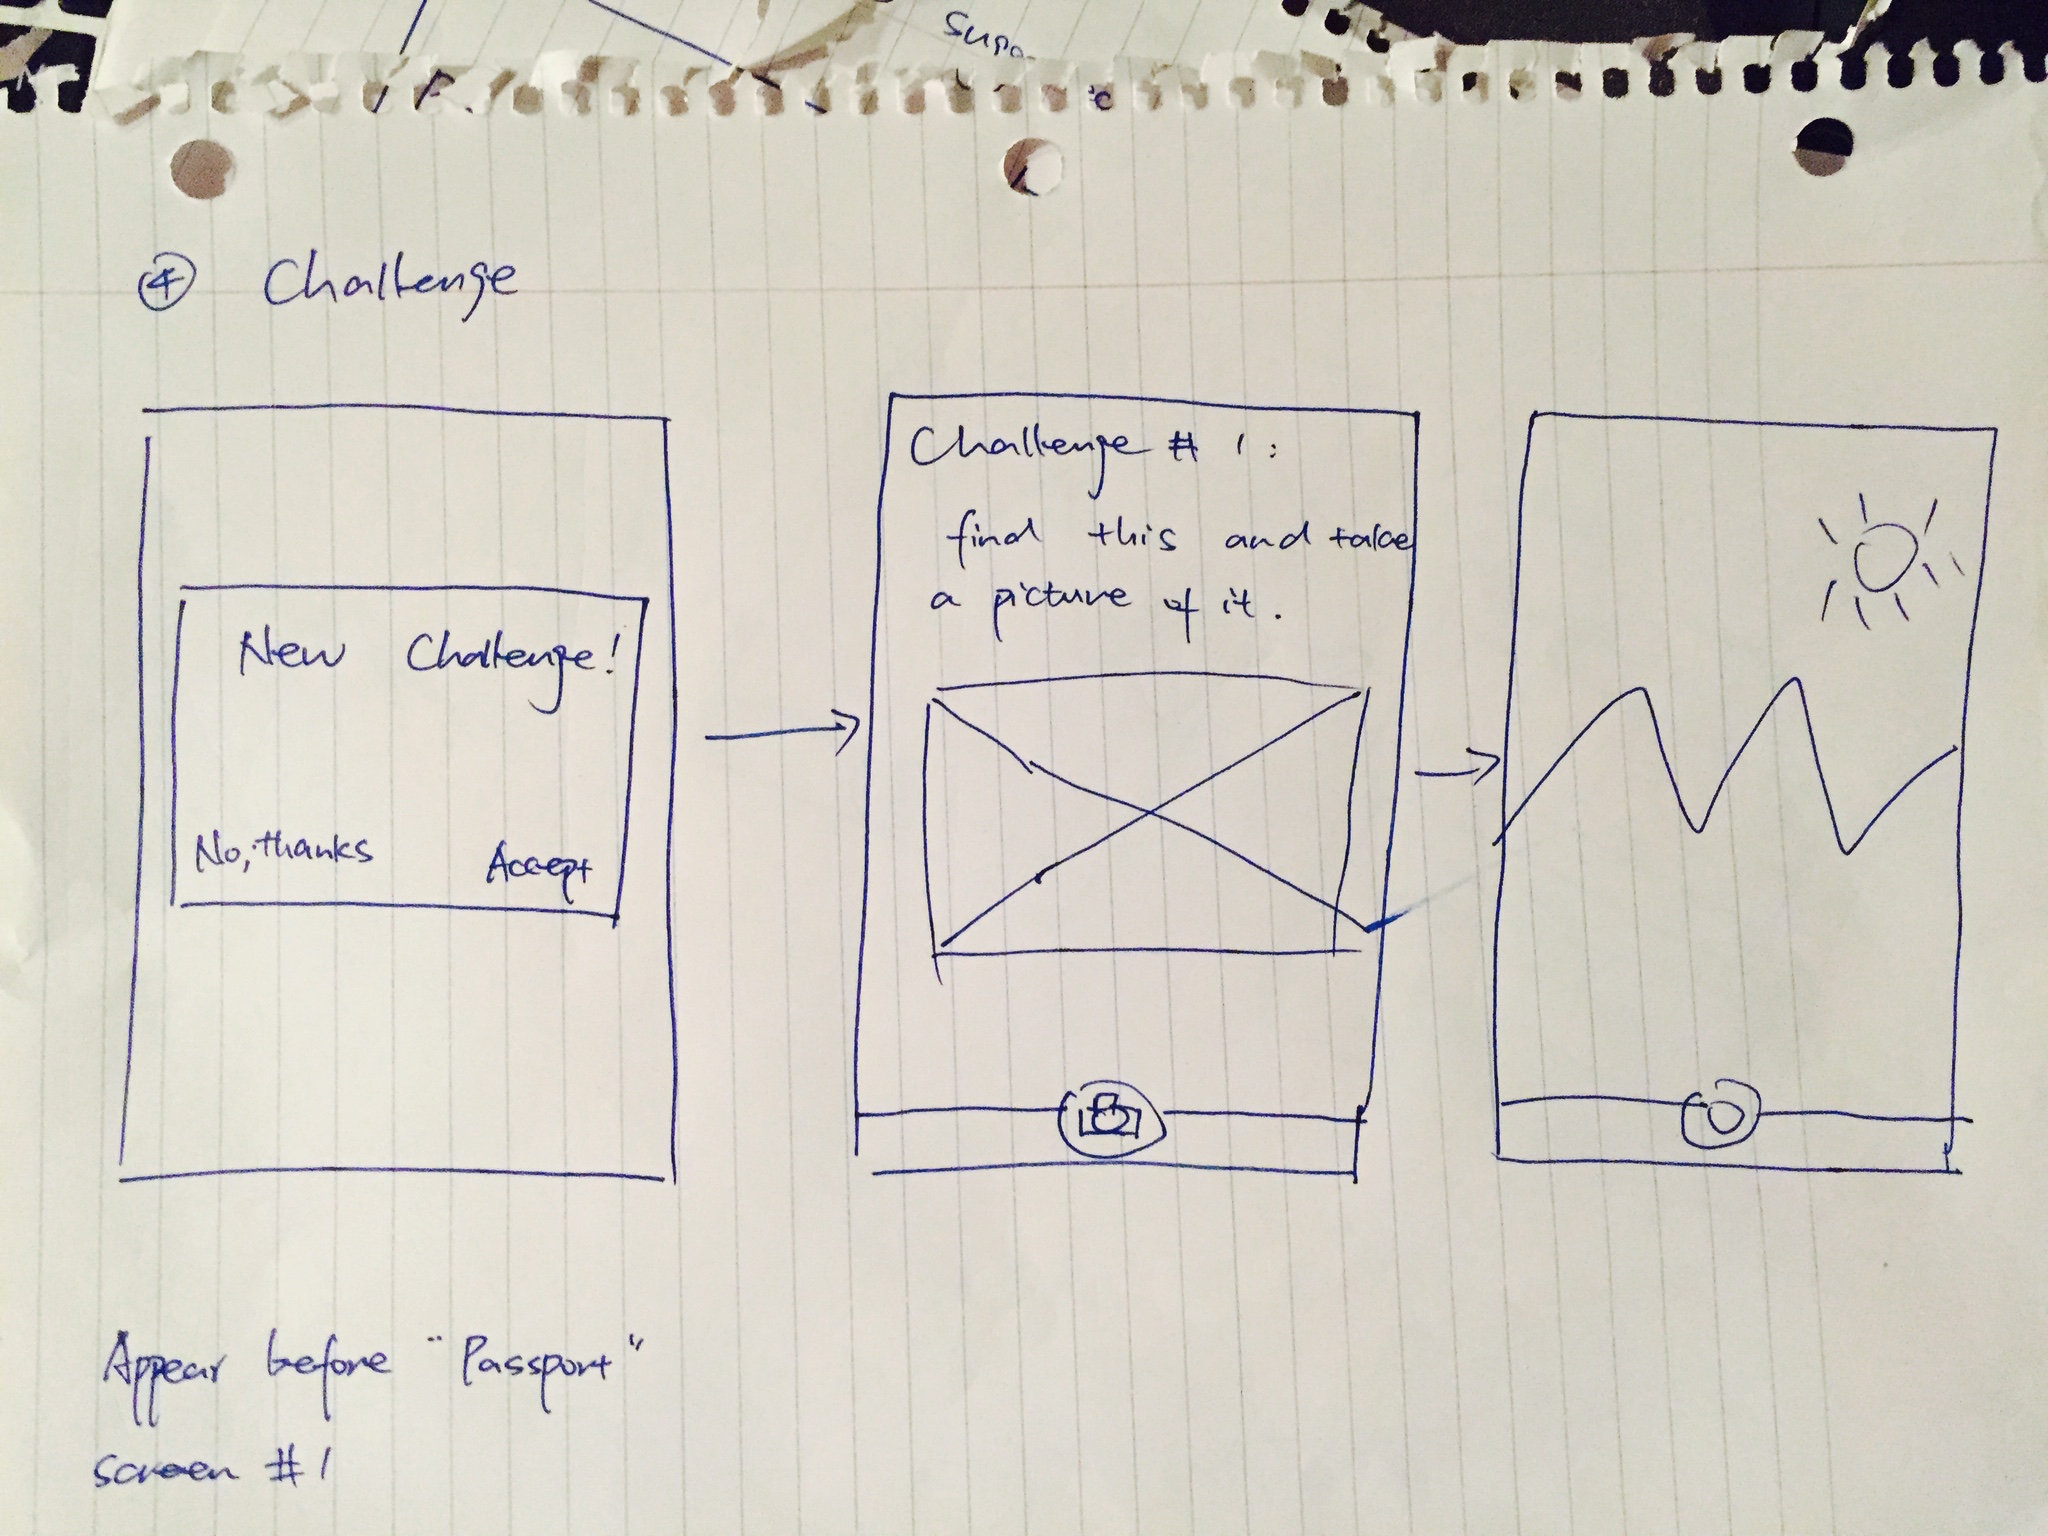 Supa
④ Challenge
New Challenge!
No, thanks
Accept
Challenge # 1:
find this and take
a picture of it.
Appear before "Passport"
screen #1